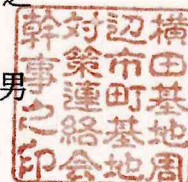 横田基地周
辺市町基地
対策連絡会
幹事之印
男